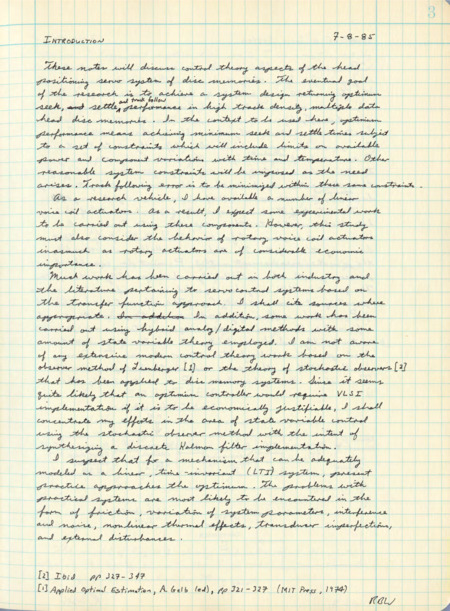 3
INTRODUCTION 7-8-85
These notes will discuss control theory aspects of the head
positioning servo system of disc memories. The eventual goal
of the research is to achieve a system design returning optimum
seek, and settle, and track follow performance in high track density, multiple data
head disc memories. In the context to be used here, optimum
performance means achieving minimum seek and settle times subject
to a set of constraints which will include limits on available
power and component variations with time and temperature. Other
reasonable system constraints will be imposed as the need
arises. Track following error is to be minimized within these same constraints.
As a research vehicle, I have available a number of linear
voice coil actuators. As a result, I expect some experimental work
to be carried out using these components. However, this study
must also consider the behavior of rotary voice coil actuators
inasmuch as rotary actuators are of considerable economic
importance.
Much work has been carried out in both industry and
the literature pertaining to servo control systems based on
the transfer function approach. I shall cite sources where
appropriate. In addition In addition, some work has been
carried out using hybrid analog/digital methods with some
amount of state variable theory employed. I am not aware
of any extensive modern control theory work based on the
observer method of Luenberger [1] or the theory of stochastic observers [2]
that has been applied to disc memory systems. Since it seems
quite likely that an optimum controller would require VLSI
implementation if it is to be economically justifiable, I shall
concentrate my efforts in the area of state variable control
using the stochastic observer method with the intent of
synthesizing a discrete Kalman filter implementation.
I suspect that for a mechanism that can be adequately
modeled as a linear, time-invariant (LTI) system, present
practice approaches the optimum. The problems with
practical systems are most likely to be encountered in the
form of friction, variation of system parameters, interference
and noise, nonlinear thermal effects, transducer imperfections,
and external disturbances.
[2] Ibid pp 327-347
[1] Applied Optimal Estimation, A. Gelb (ed), pp 321-327 (MIT Press, 1974)